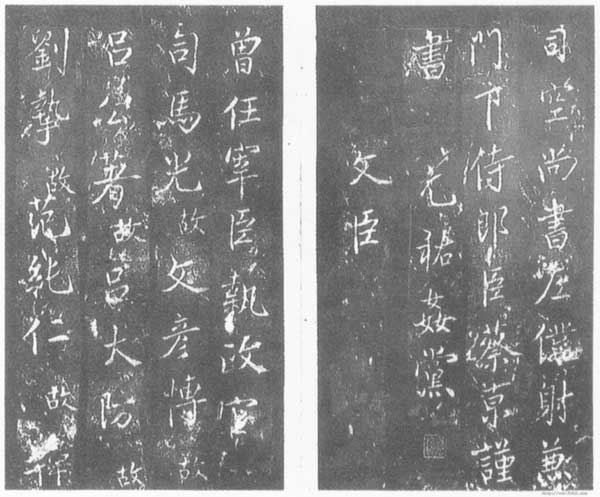 司空尚書左僕射兼
門下侍郎臣蔡京謹
書
元祐姦黨
文臣
曾任宰臣執政官
司馬光故 文彦博故
呂公著故 呂大防故
劉摯故 范純仁故